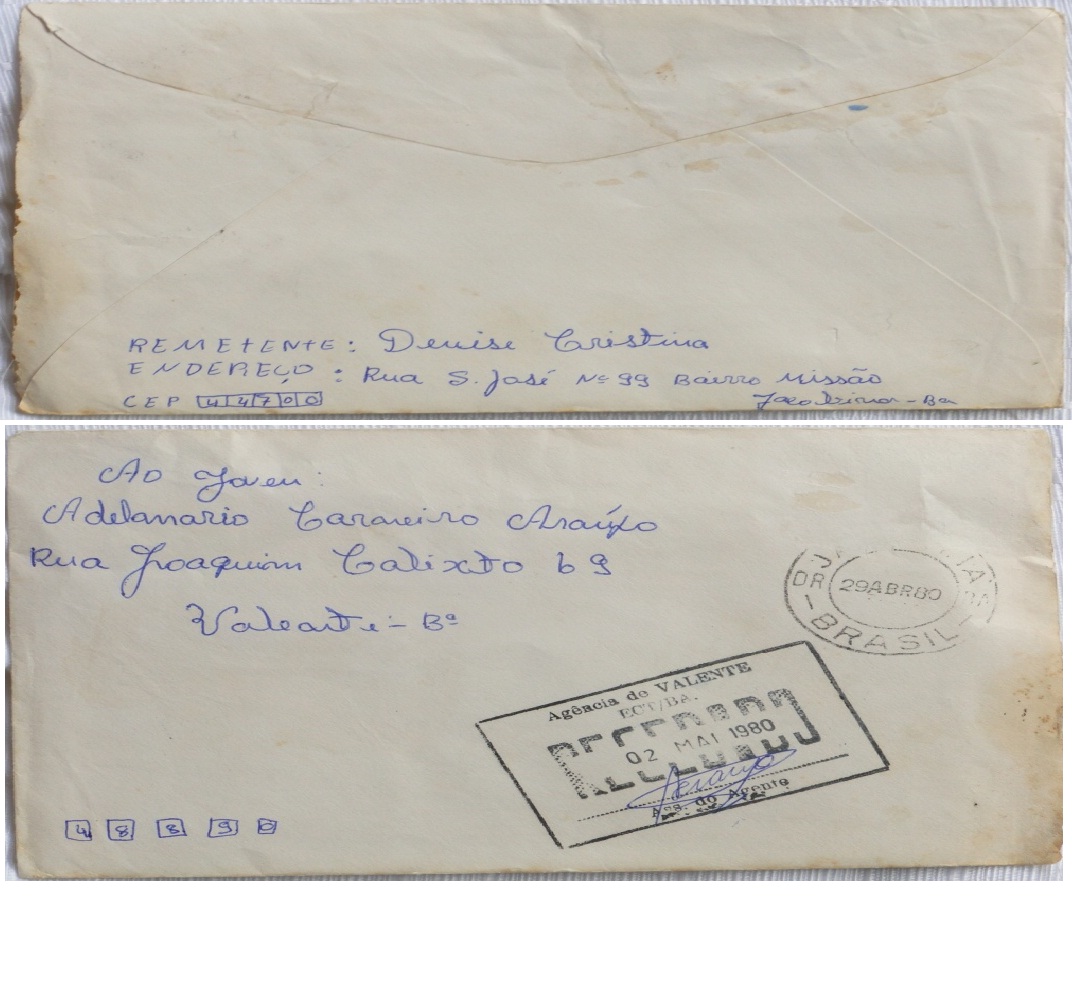 REMETENTE: Denise Cristina
ENDEREÇO: Rua S. José Nº 99 Bairro Missão
Jacobina - Ba
CEP 44700
Ao Jovem:
Adelmario Carneiro Araújo
Rua Joaquim Calixto 69
Valente - Bª
DR
29ABR80
BRASIL
Agência de VALENTE
ECT/BA.
RECEBIDO
02 MAI 1980
Araujo
Ass. do Agente
48890